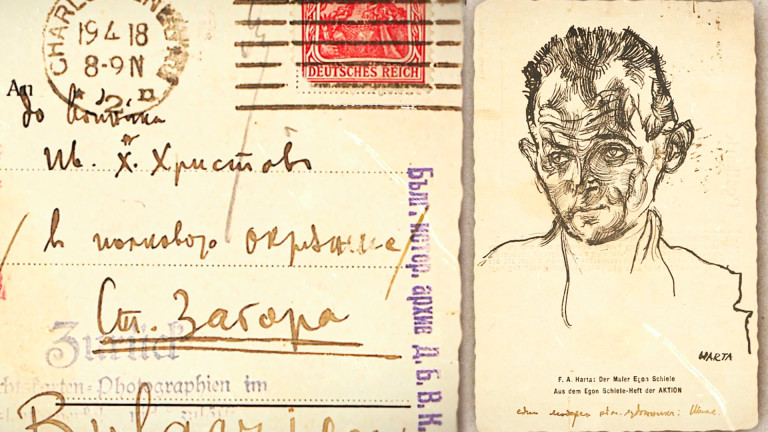 CHARLOTTENBURG
19.4.18
8-9 N
DEUTSCHES REICH
An
до войника
Ив. Х. Христовъ
в полково окръжие
Ст. Загора
Бълг. истор. архив Д. Б. В. К.
Zurück
Photographien im
Bulgarien
HARTA
F. A. Harta: Der Maler Egon Schiele
Aus dem Egon Schiele-Heft der AKTION
един модерен